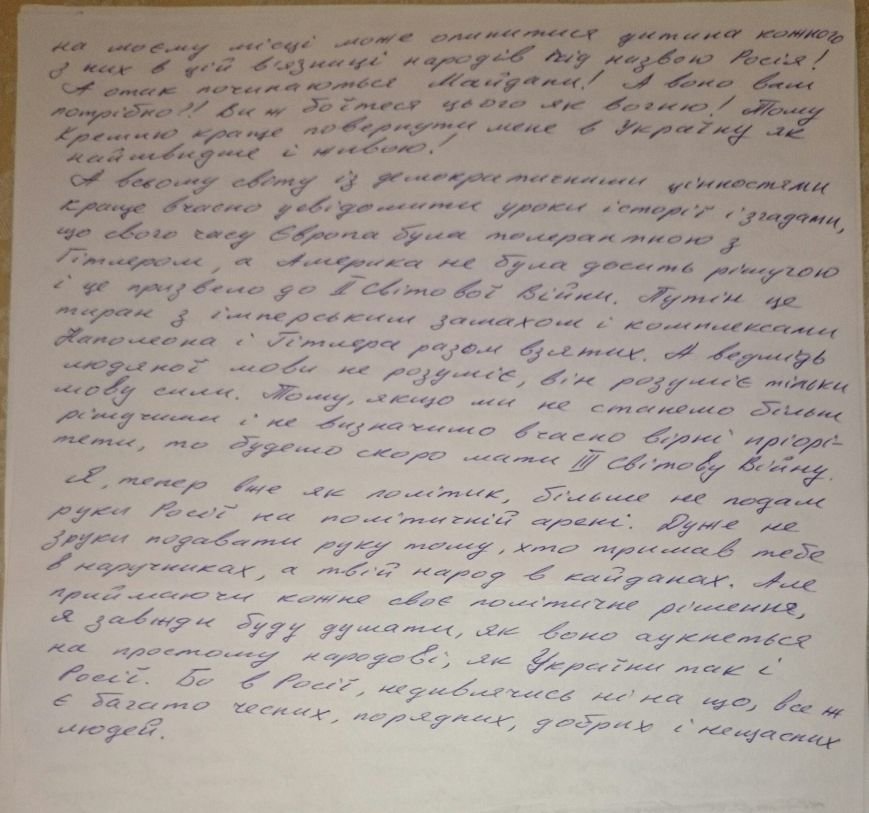 на моєму місці може опинитися дитина кожного
з них в цій в'язниці народів під назвою Росія!
А отак починаються Майдани! А воно вам
потрібно?! Ви ж боїтеся цього як вогню! Тому
Кремлю краще повернути мене в Україну як
найшвидше і живою!
А всьому світу із демократичними цінностями
краще вчасно усвідомити уроки історії і згадати,
що свого часу Європа була толерантною з
Гітлером, а Америка не була досить рішучою
і це призвело до II Світової Війни. Путін це
тиран з імперським замахом і комплексами
Наполеона і Гітлера разом взятих. А ведмідь
людяної мови не розуміє, він розуміє тільки
мову сили. Тому, якщо ми не станемо більш
рішучими і не визначимо вчасно вірні пріорі-
тети, то будемо скоро мати III Світову Війну.
Я, тепер вже як політик, більше не подам
руки Росії на політичній арені. Дуже не
зруки подавати руку тому, хто тримав тебе
в наручниках, а твій народ в кайданах. Але
приймаючи кожне своє політичне рішення,
я завжди буду думати, як воно аукнеться
на простому народові, як України так і
Росії. Бо в Росії, недивлячись ні на що, все ж
є багато чесних, порядних, добрих і нещасних
людей.